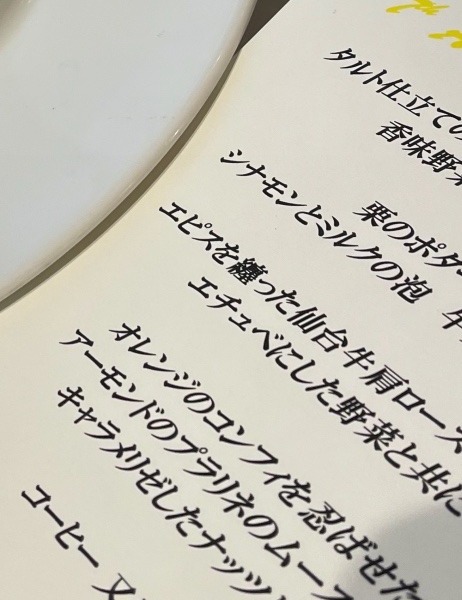 タルト仕立ての
香味野菜
栗のポタ
シナモンとミルクの泡 牛
エピスを纏った仙台牛肩ロース
エチュベにした野菜と共に
オレンジのコンフィを忍ばせた
アーモンドのプラリネのムース
キャラメリゼしたナッツ
コーヒー 又